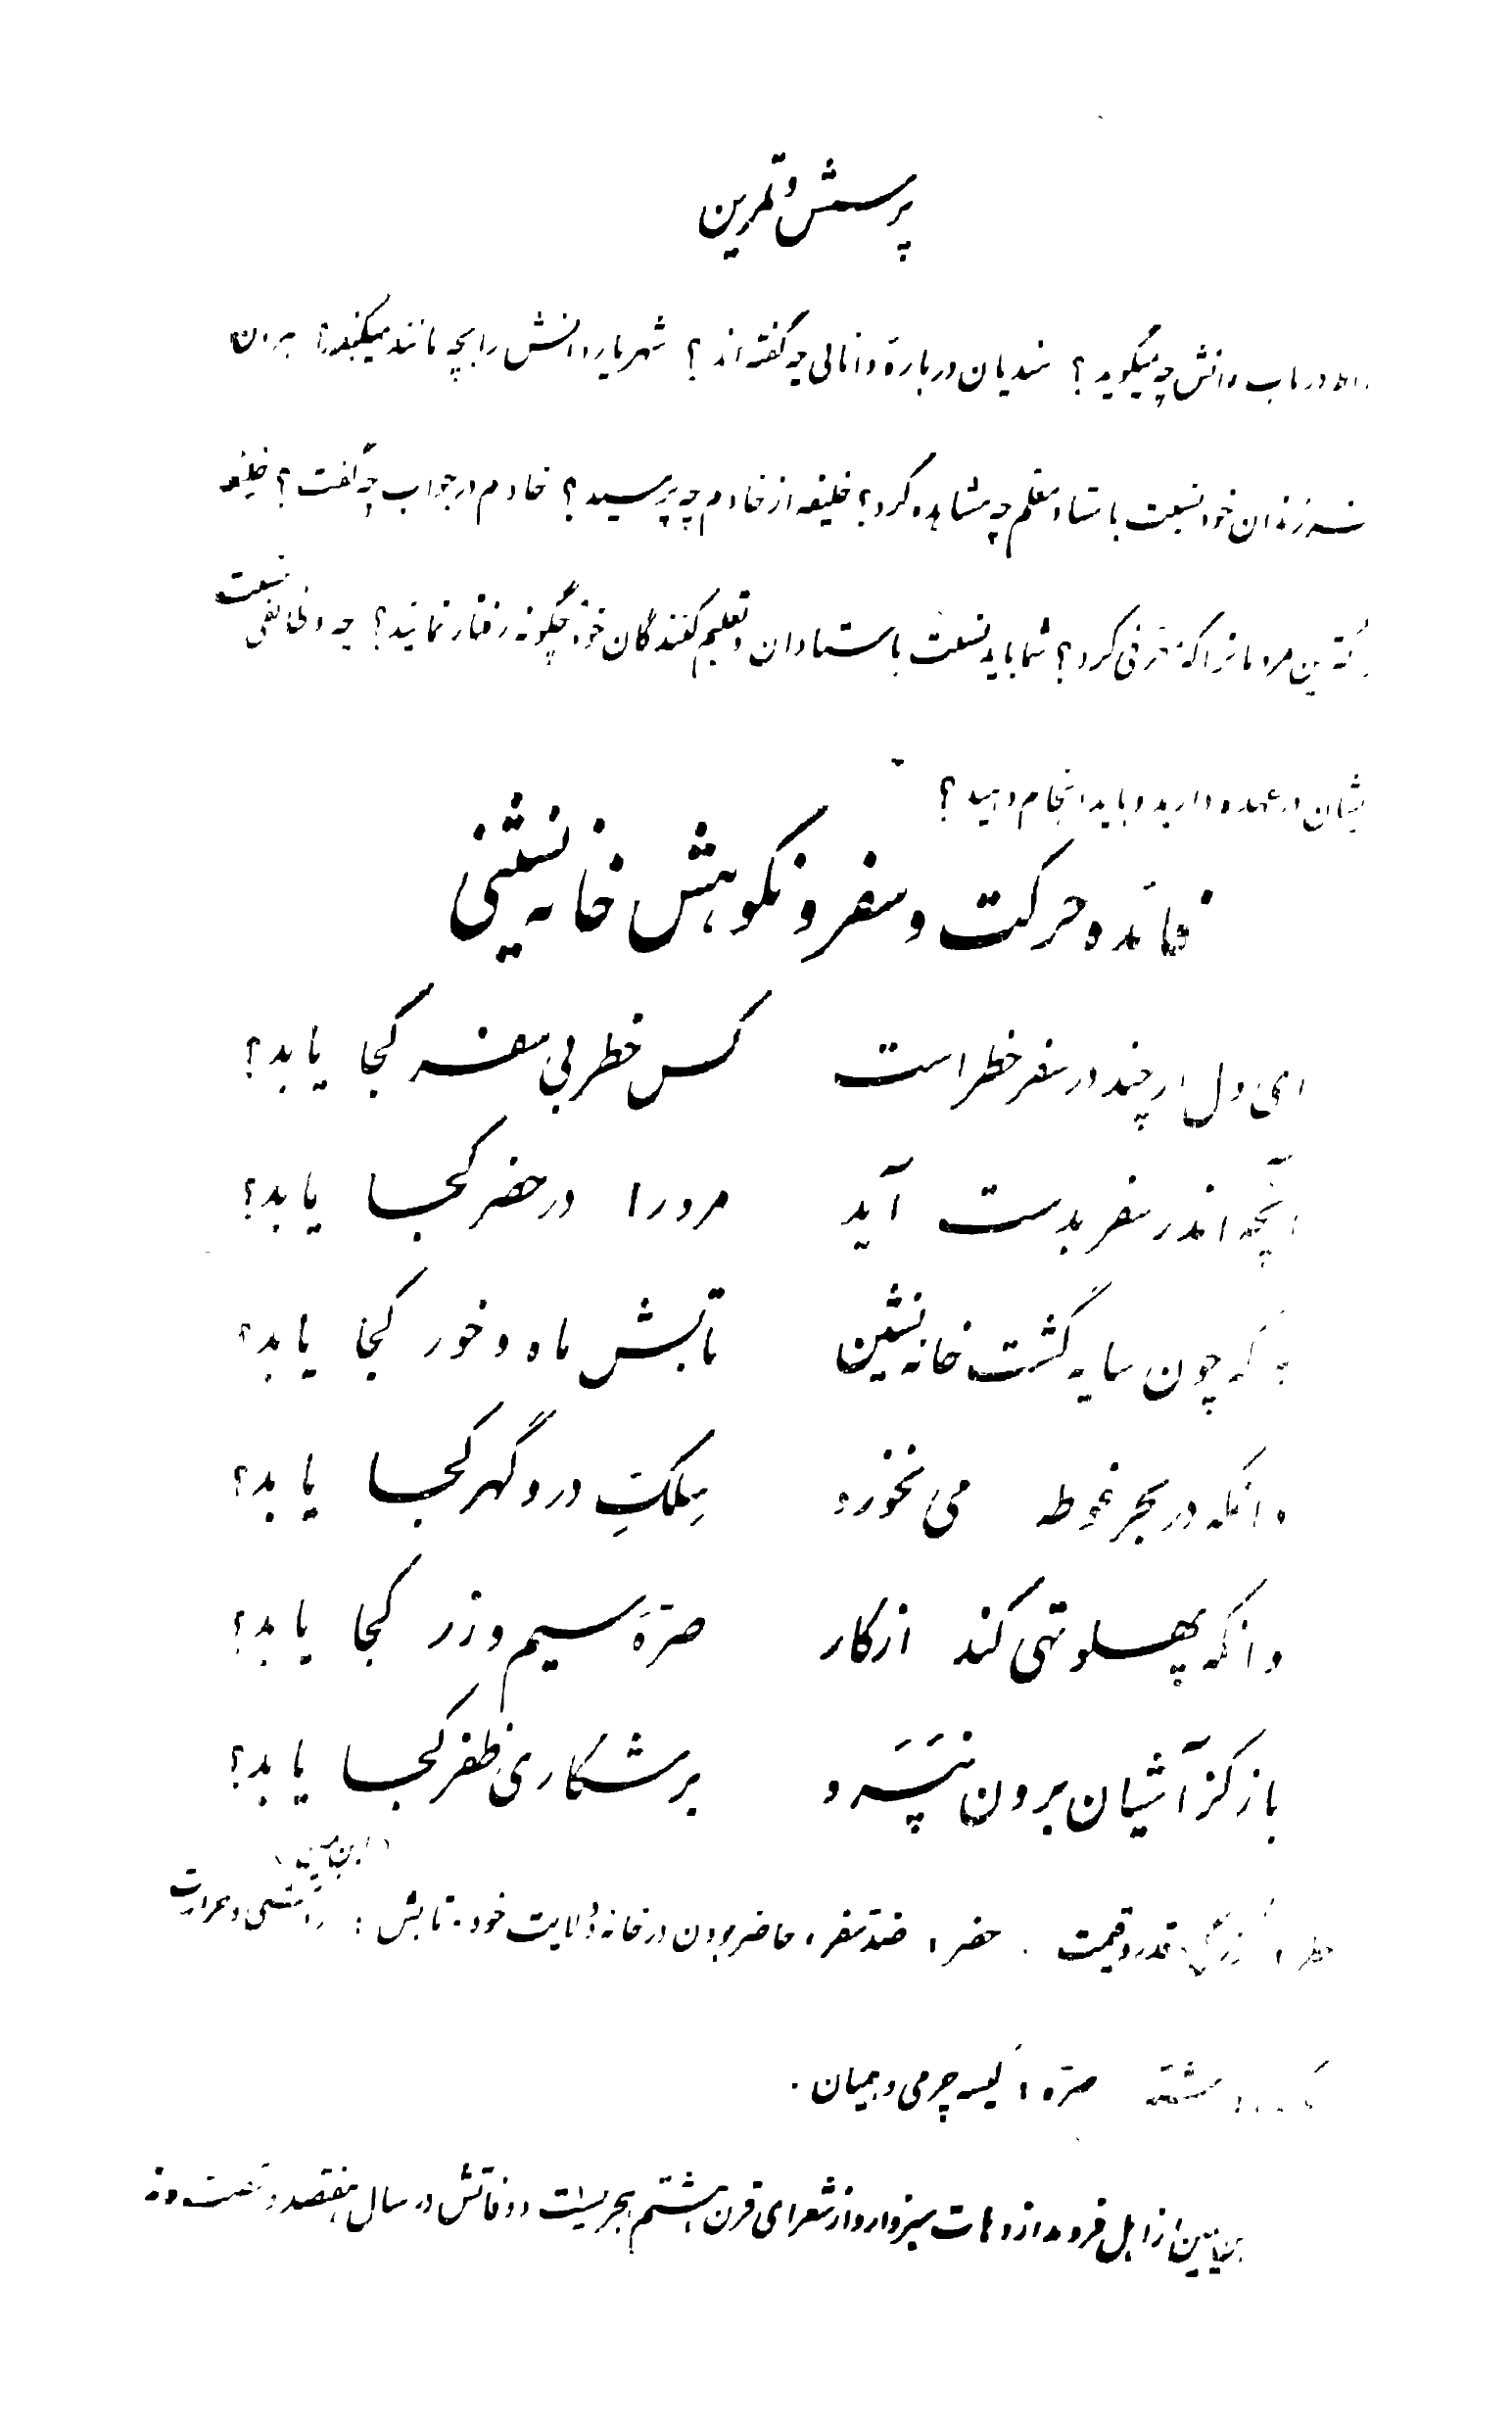 پرسش و تمرین
در باب دانش چه میگوید؟ هندیان دربارهٔ دانائی چه گفته‌اند؟ شهریار دانش را بچه مانند میکند؟ هرون
فرزندان خود نسبت باستاد و معلم چه مشاهده کرد؟ خلیفه از خادم چه پرسید؟ خادم در جواب چه گفت؟ خلیفه
مردمانرا که معرفی کرد؟ شما باید نسبت باستادان و تعلیم کنندگان خود چگونه رفتار نمائید؟ چه وظائفی نسبت
بایشان در عهده دارید و باید انجام دهید؟
فائده حرکت و سفر و نکوهش خانه نشینی
ای دل ار چند در سفر خطر است کس خطر بی سفر کجا یابد؟
آنچه اندر سفر بدست آید مرد را در حضر کجا یابد؟
هر که چون سایه گشت خانه نشین تابش ماه و خور کجا یابد؟
وانکه در بحر غوطه می نخورد سلک در و گهر کجا یابد؟
وانکه پهلو تهی کند از کار صرهٔ سیم و زر کجا یابد؟
باز کز آشیان برون نپرد بر شکاری ظفر کجا یابد؟
(ابن یمین)
خطر: بزرگی، قدر و قیمت. حضر: ضد سفر، حاضر بودن در خانه و ولایت خود. تابش: روشنی و حرارت
رشته صره: کیسه چرمی و همیان.
ابن یمین از اهل فرومد از دهات سبزوار و از شعرای قرن هشتم هجریست و وفاتش در سال هفتصد و شصت و نه